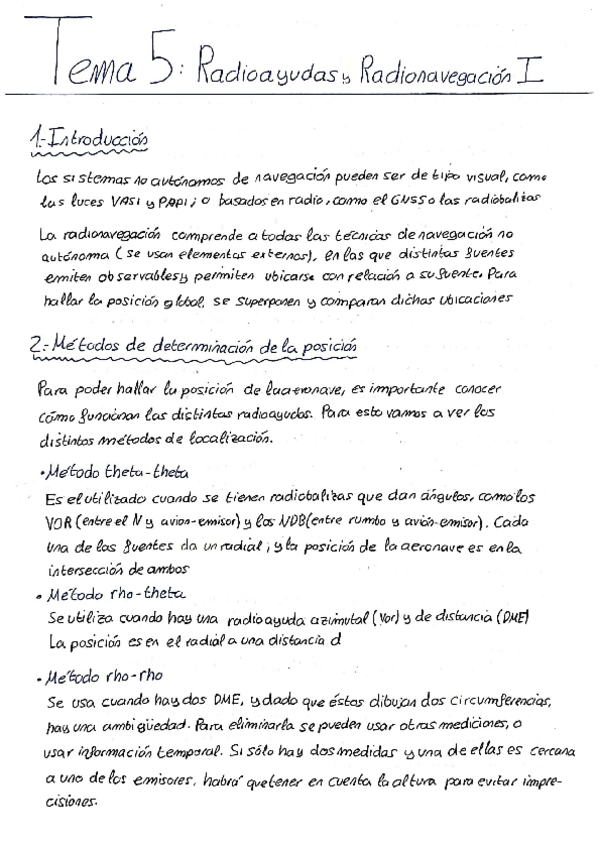 Tema 5: Radioayudas y Radionavegación I
1.- Introducción
Los sistemas no autónomos de navegación pueden ser de tipo visual, como
las luces VASI y PAPI; o basados en radio, como el GNSS o las radiobalizas
La radionavegación comprende a todas las técnicas de navegación no
autónoma (se usan elementos externos), en las que distintas fuentes
emiten observables y permiten ubicarse con relación a su fuente. Para
hallar la posición global, se superponen y comparan dichas ubicaciones
2.- Métodos de determinación de la posición
Para poder hallar la posición de la aeronave, es importante conocer
cómo funcionan las distintas radioayudas. Para esto vamos a ver los
distintos métodos de localización.
• Método theta-theta
Es el utilizado cuando se tienen radiobalizas que dan ángulos, como los
VOR (entre el N y avion-emisor) y los NDB (entre rumbo y avión-emisor). Cada
una de las fuentes da un radial, y la posición de la aeronave es en la
intersección de ambos
• Método rho-theta
Se utiliza cuando hay una radioayuda azimutal (Vor) y de distancia (DME)
La posición es en el radial a una distancia d
• Método rho-rho
Se usa cuando hay dos DME, y dado que éstos dibujan dos circumferencias,
hay una ambigüedad. Para eliminarla se pueden usar otras mediciones, o
usar información temporal. Si sólo hay dos medidas y una de ellas es cercana
a uno de los emisores, habrá que tener en cuenta la altura para evitar impre-
cisiones.